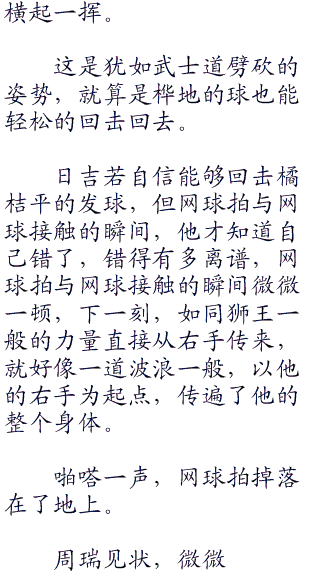 横起一挥。
这是犹如武士道劈砍的
姿势，就算是桦地的球也能
轻松的回击回去。
日吉若自信能够回击橘
桔平的发球，但网球拍与网
球接触的瞬间，他才知道自
己错了，错得有多离谱，网
球拍与网球接触的瞬间微微
一顿，下一刻，如同狮王一
般的力量直接从右手传来，
就好像一道波浪一般，以他
的右手为起点，传遍了他的
整个身体。
啪嗒一声，网球拍掉落
在了地上。
周瑞见状，微微